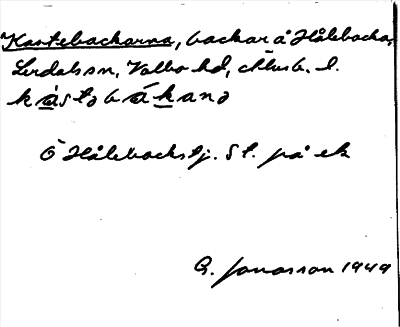 Kastebackarna, backar å Hålebacka,
Lerdals sn, Valbo hd, Älvsb. l.
kàstəbákanə
Ö Hålebackstj. St. på ek
G. Jonasson 1949